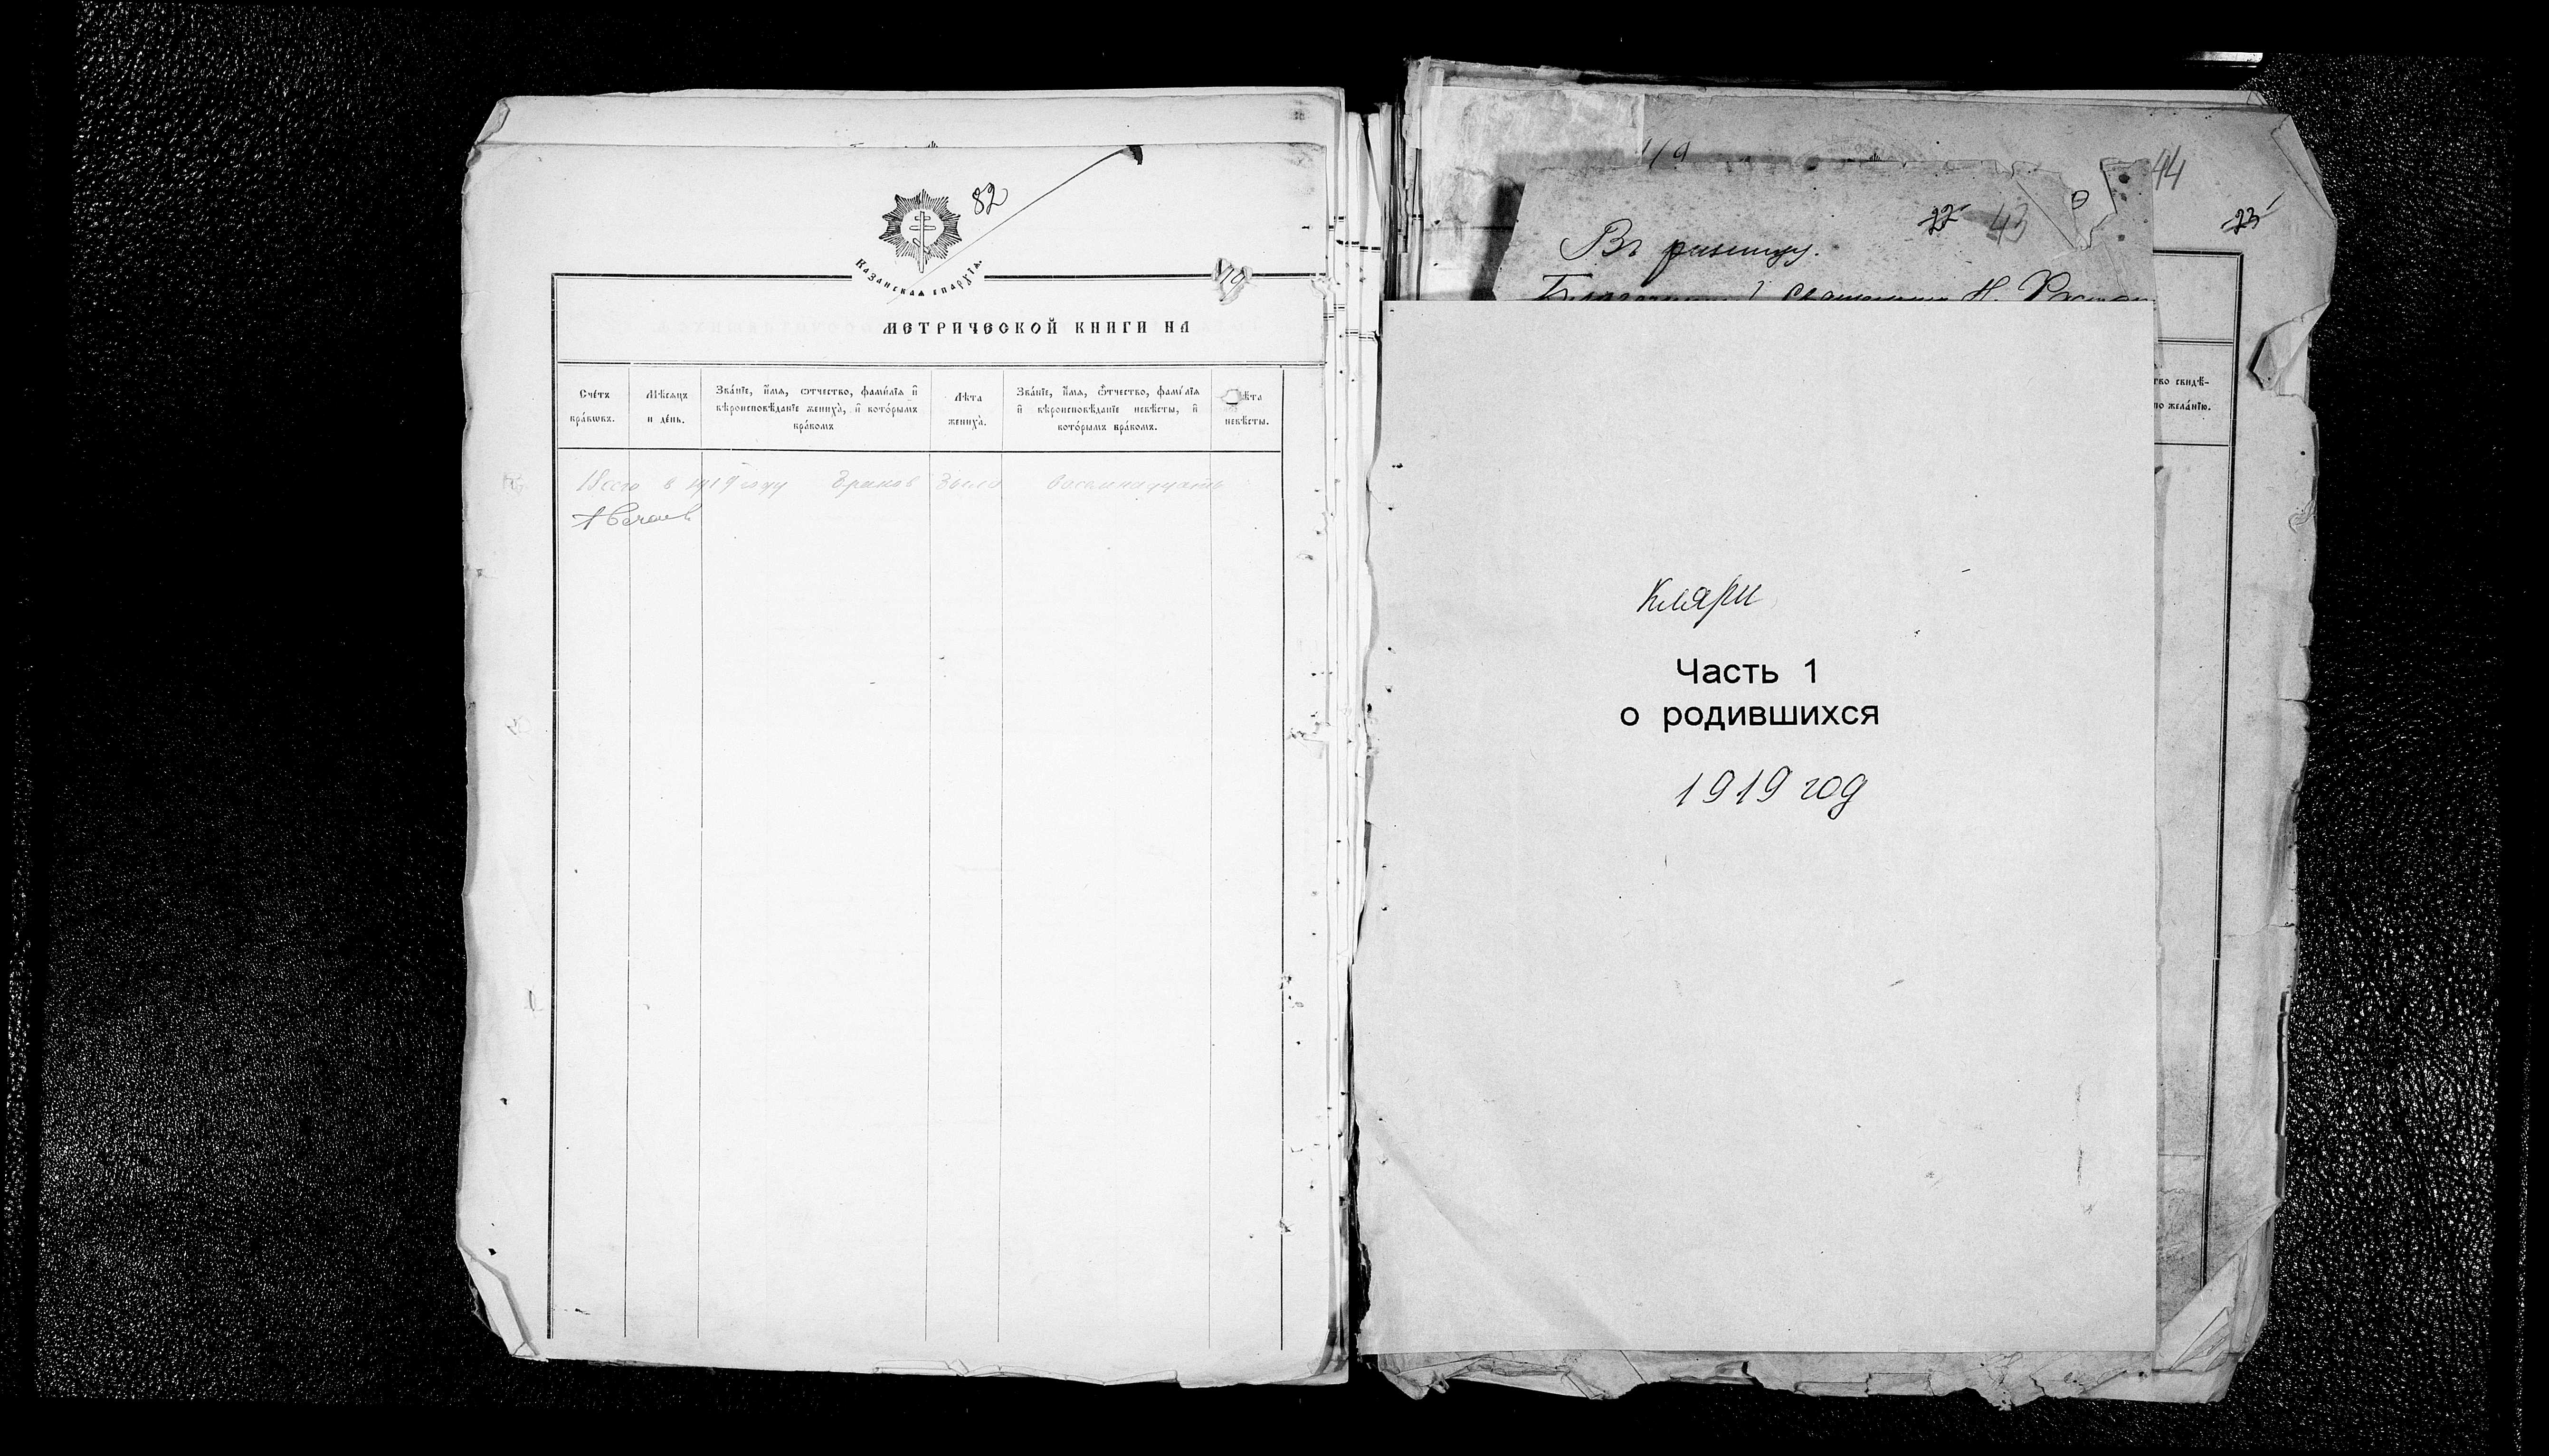 82
Казанская епархія.
110
МЕТРИЧЕСКОЙ КНИГИ НА
Сче́тъ бра́кѡвъ.
Мѣ́сяцъ и де́нь.
Зва́нїе, и҆́мя, ѻ҆́тчество, фами́лїя и҆ вѣроисповѣ́данїе жениха̀, и҆ кото́рымъ бра́комъ
Лѣ́та жениха̀.
Зва́нїе, и҆́мя, ѻ҆́тчество, фами́лїя и҆ вѣроисповѣ́данїе невѣ́сты, и҆ кото́рымъ бра́комъ.
Лѣ́та невѣ́сты.
Всего в 1919 году браков было восемнадцать
119
44
22 43
23
Въ ризницу.
Благочинный Священникъ Н.
тво свидѣ-
по жела́нїю.
Кляри
Часть 1
о родившихся
1919 год